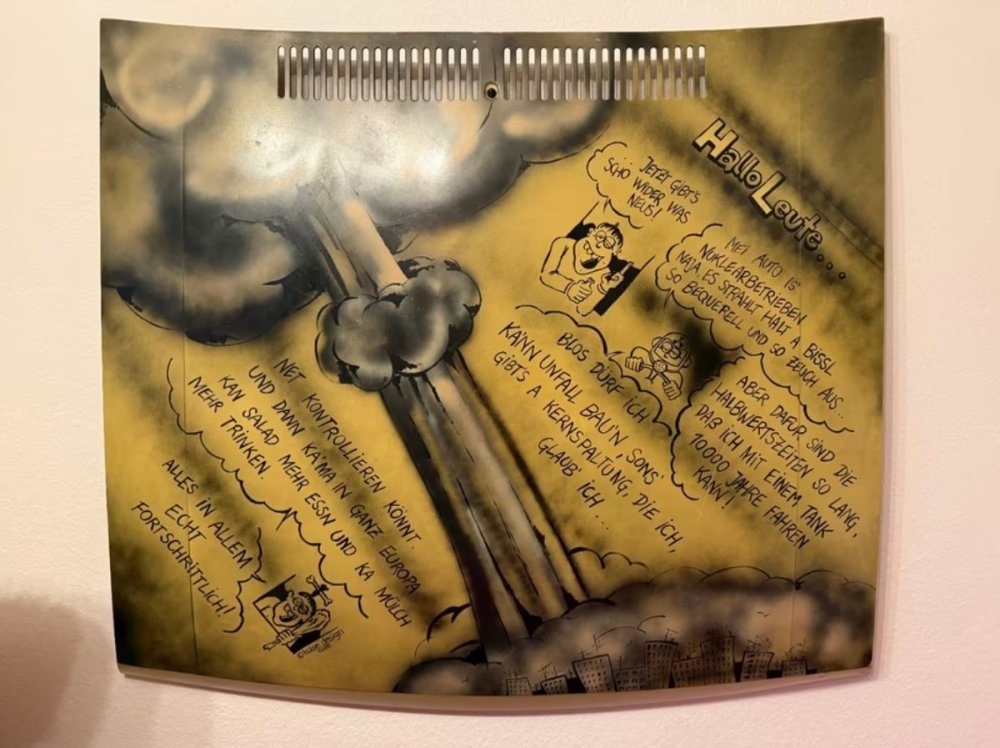 Hallo Leute...
JETZT GIBT'S
SCHO WIDER WAS
NEUS!
MEI AUTO IS
NUKLEARBETRIEBEN
NAJA, ES STRAHLT HALT A BISSL
SO BEQUERELL UND SO ZEUCH AUS...
ABER DAFÜR SIND DIE
HALBWERTSZEITEN SO LANG,
DAß ICH MIT EINEM TANK
10000 JAHRE FAHREN
KANN!
BLOS DÜRF ICH
KANN UNFALL BAU'N, SONS
GIBT'S A KERNSPALTUNG, DIE ICH,
GLAUB' ICH...
NET KONTROLLIEREN KÖNNT.
UND DANN KA'MA IN GANZ EUROPA
KAN SALAD MEHR ESSN UND KA MÜLCH
MEHR TRINKEN.
ALES IN ALLEM
ECHT
FORTSCHRITTLICH!